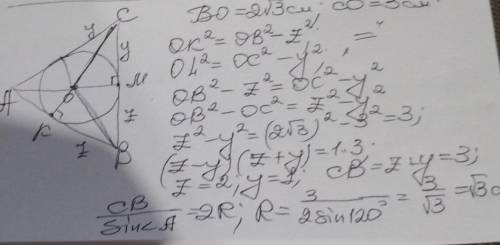 BO=2√3см. CO=3см
OK²=OB²-z²
OL²=OC²-y²
OB²-z²=OC²-y²
OB²-OC²=z²-y²
z²-y²=(2√3)²-3²=3;
(z-y)(z+y)=1·3
z=2, y=1; CB=z+y=3;
CB/sin A=2R; R=3/2sin120°=3/√3=√3 с
C
y
y
M
z
A
O
K
z
B